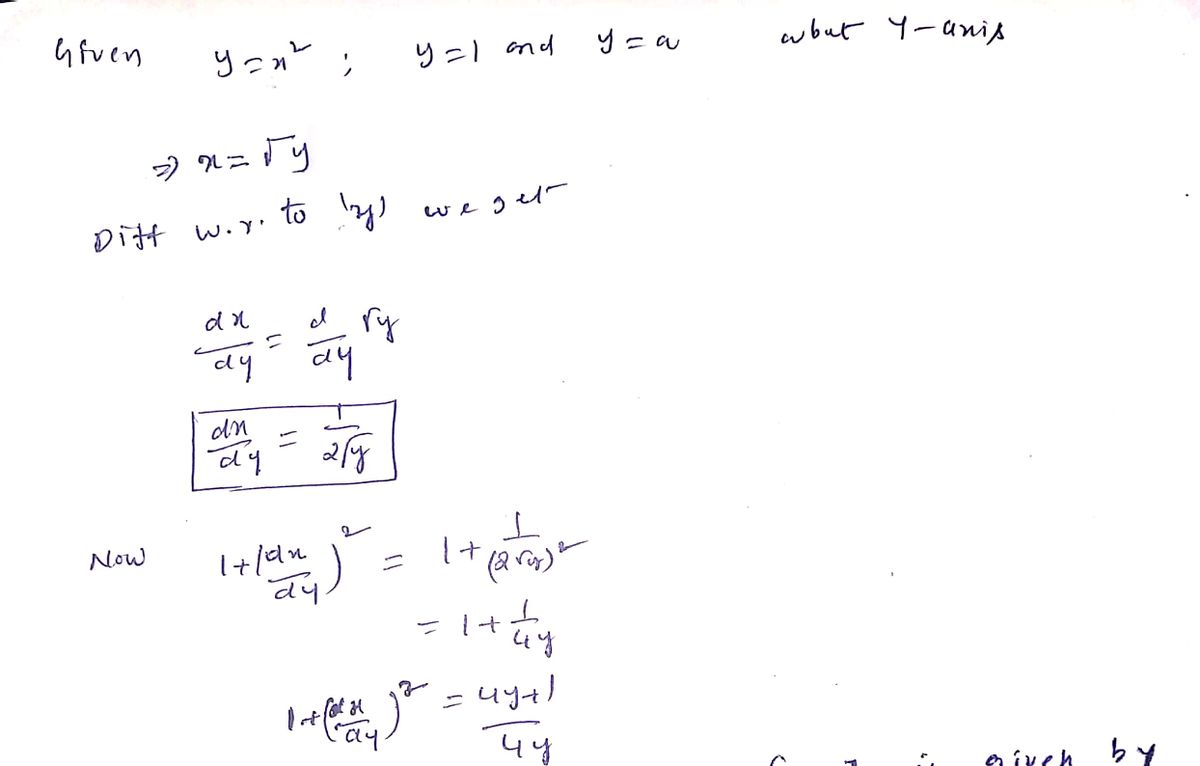 Given y = x² ; y = 1 and y = a about Y-axis
⇒ x = √y
Diff w.r. to 'y' we get
dx/dy = d/dy √y
dx/dy = 1/2√y
Now 1+(dx/dy)² = 1+ 1/(2√y)²
= 1+ 1/4y
1+(dx/dy)² = 4y+1/4y
is given by